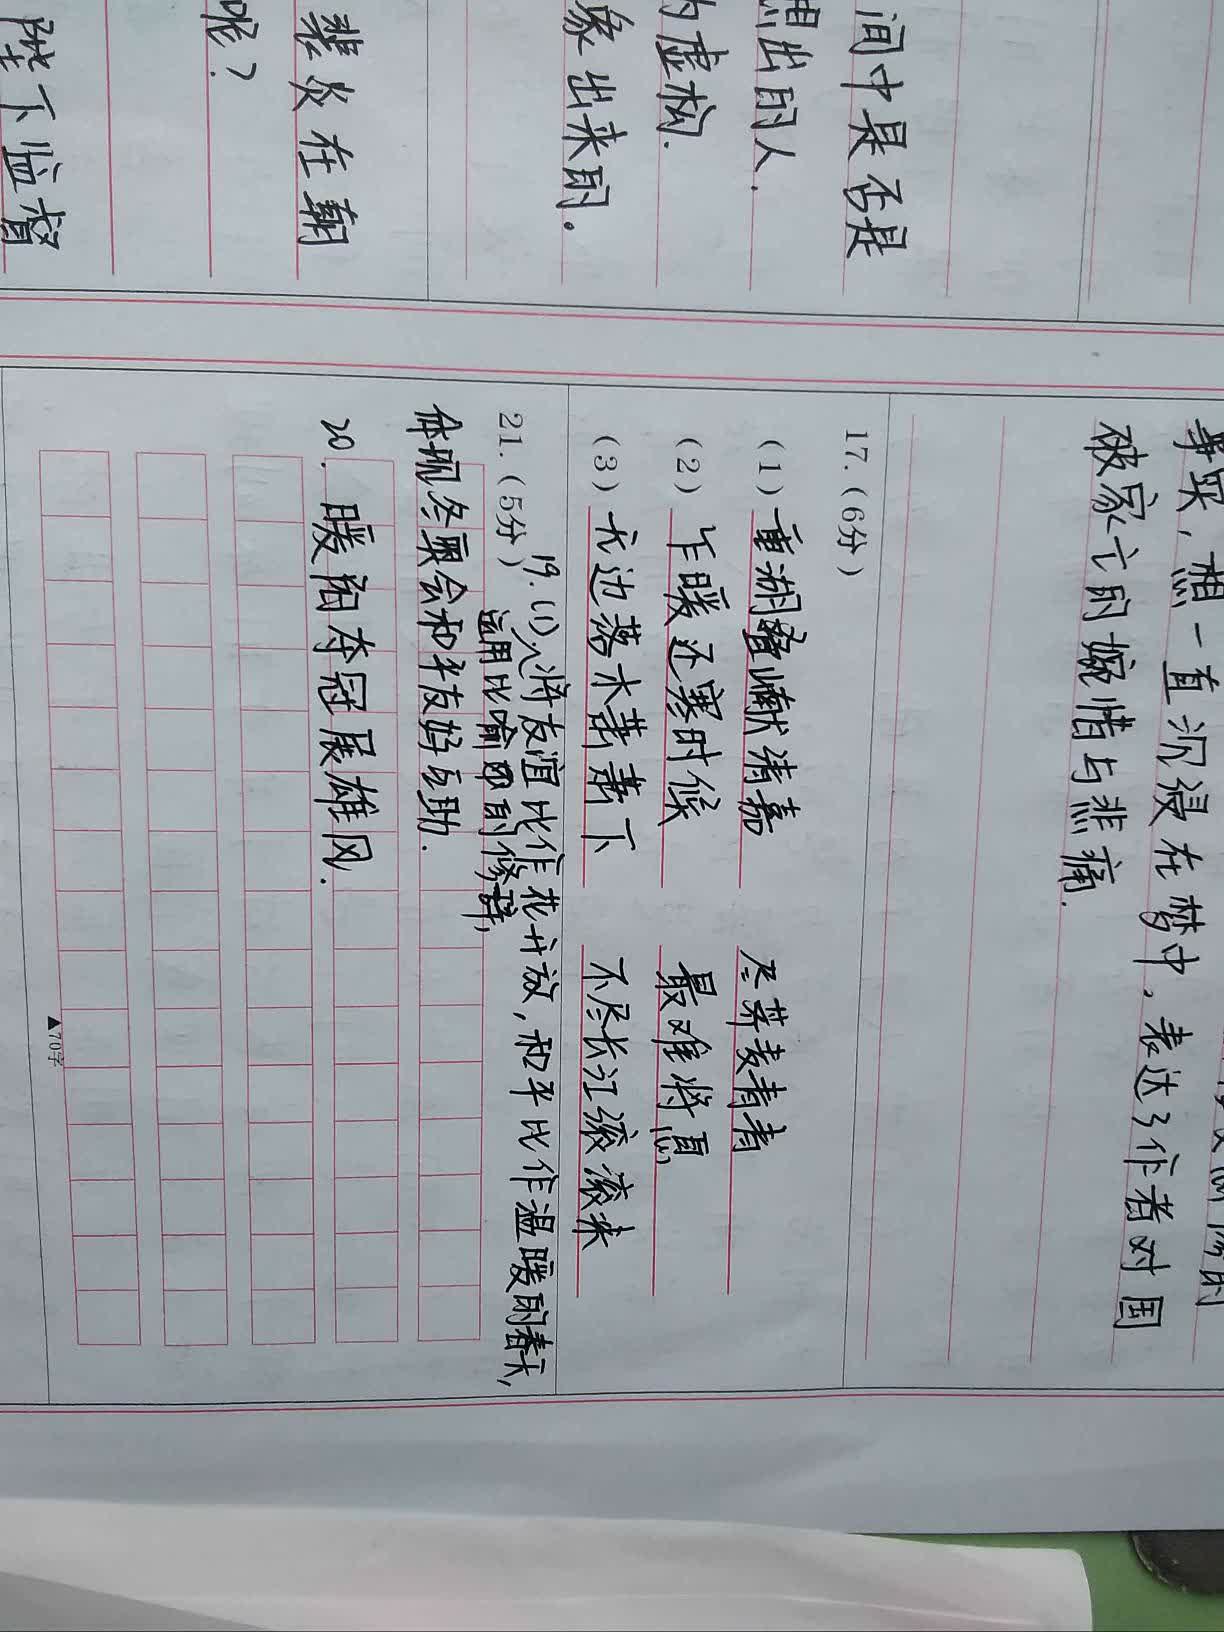 间中是否是
想出的人.
为虚构.
象出来的。
裴炎在朝
呢?
陛下监督
事实,想一直沉浸在梦中。表达了作者对国
被家亡的惋惜与悲痛.
17.(6分)
(1)重湖叠巘清嘉 尽荠麦青青
(2)乍暖还寒时候 最难将息
(3)无边落木萧萧下 不尽长江滚滚来
19.(1)将友谊比作花开放,和平比作温暖的春天,
21.(5分)
运用比喻的修辞,
体现冬奥会和平友好互助.
20. 暖阁夺冠展雄风.
▲70字